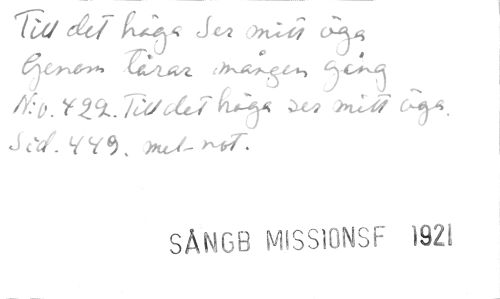 Till det höga Ser mitt öga
Genom tårar mången gång
N:o. 422. Till det höga ser mitt öga.
Sid. 449. mel-not.
SÅNGB MISSIONSF 1921